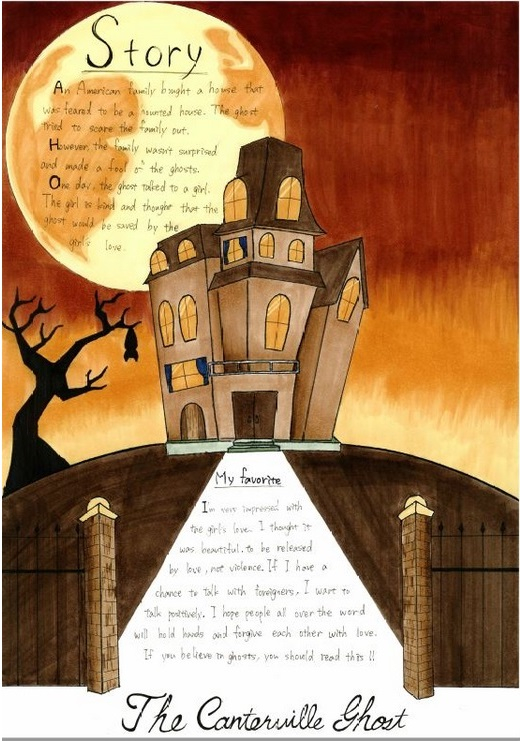 Story
An American family bought a house that
was feared to be a haunted house. The ghost
tried to scare the family out.
However, the family wasn't surprised
and made a fool of the ghosts.
One day, the ghost talked to a girl.
The girl is kind and thought that the
ghost would be saved by the
girl's love.
My favorite
I'm very impressed with
the girl's love. I thought it
was beautiful. to be released
by love, not violence. If I have a
chance to talk with foreigners, I want to
talk positively. I hope people all over the word
will hold hands and forgive each other with love.
If you believe in ghosts, you should read this !!
The Canterville Ghost